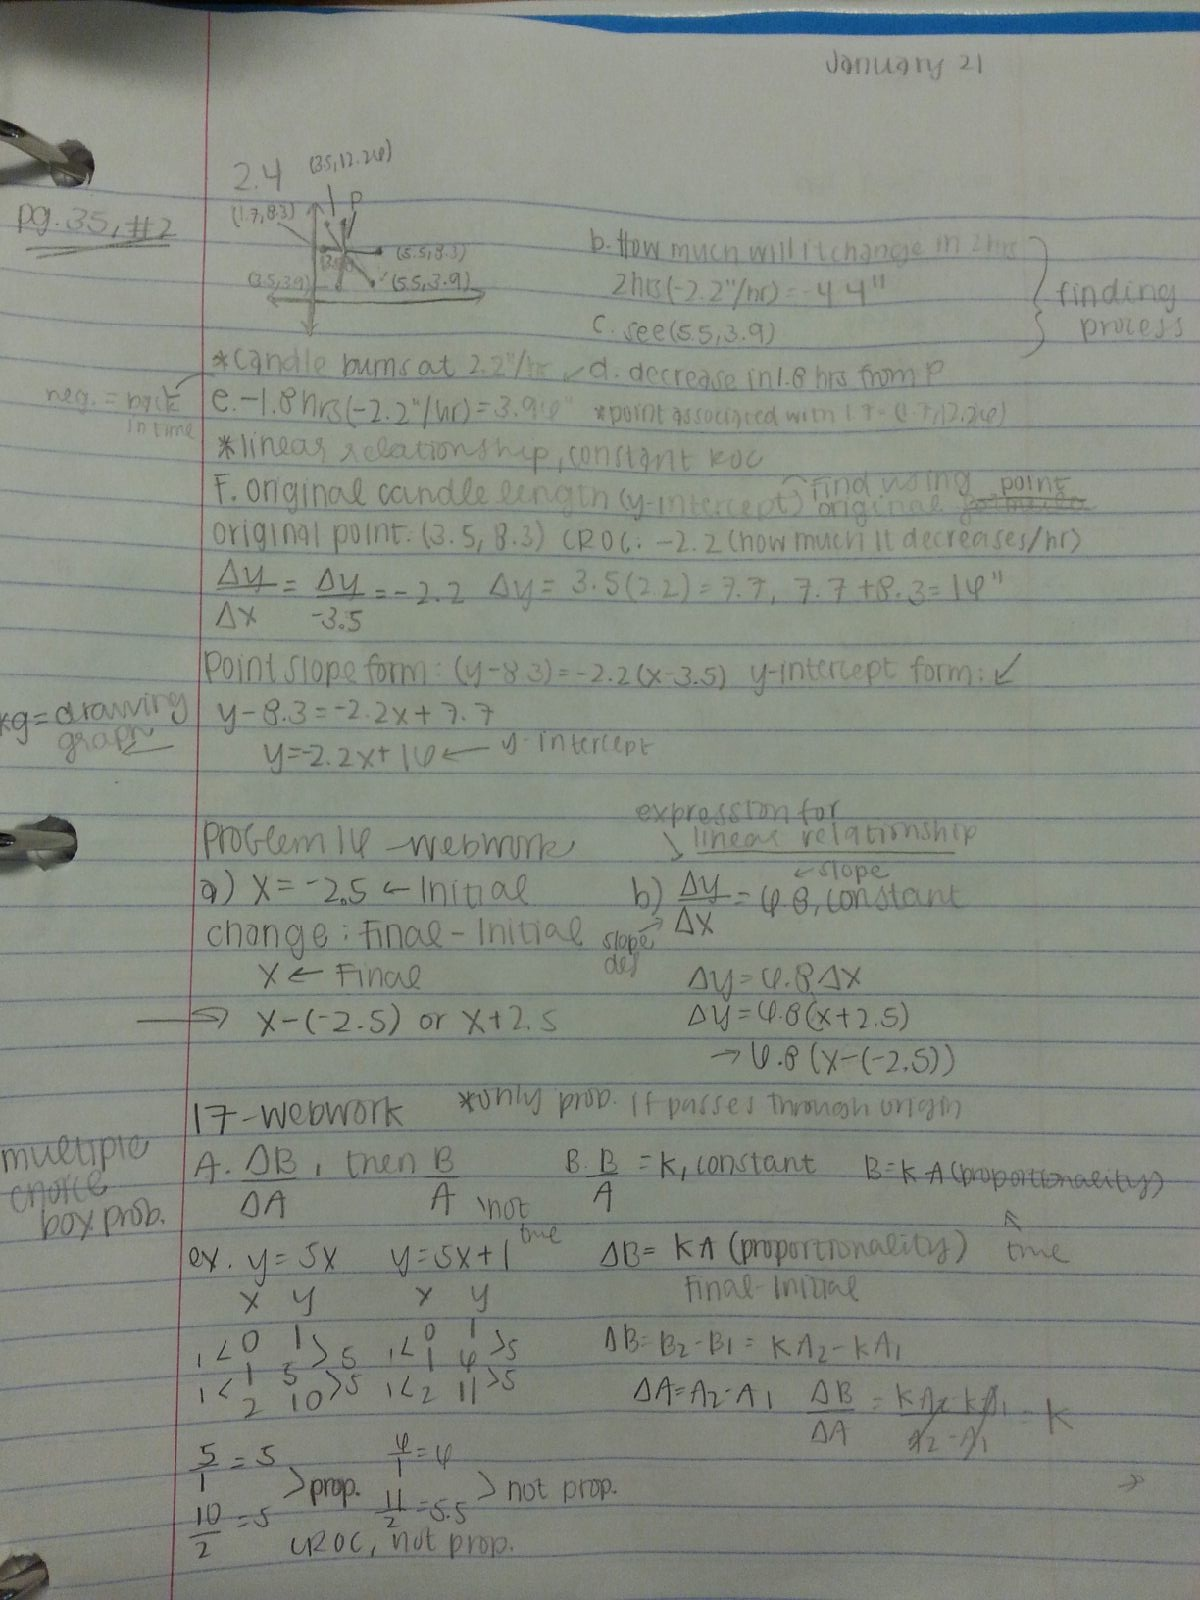 January 21
2.4 (3.5, 12.26)
pg. 35, #2
(1.7, 8.3) P
(5.5, 8.3)
(3.5, 3.9) (5.5, 3.9)
b. How much will it change in 2hrs
2hrs(-2.2"/hr) = -4.4"
c. see (5.5, 3.9)
finding
process
*candle burns at 2.2"/hr
d. decrease in 1.8 hrs from P
neg. = back
in time
e. -1.8 hrs(-2.2"/hr) = 3.96" *point associated with 1.7 = (1.7, 12.26)
*linear relationship, constant ROC
F. original candle length (y-intercept) find using point
original
original point: (3.5, 8.3) CROC: -2.2 (how much it decreases/hr)
Δy/Δx = Δy/-3.5 = -2.2 Δy = 3.5(2.2) = 7.7, 7.7 + 8.3 = 16"
point slope form: (y-8.3) = -2.2(x-3.5) y-intercept form:
kg = drawing
graph
y-8.3 = -2.2x + 7.7
y = -2.2x + 16 ← y-intercept
Problem 16 - webwork
expression for
linear relationship
a) x = -2.5 ← Initial
change: Final - Initial
x ← Final
→ x-(-2.5) or x+2.5
b) Δy/Δx = 6.8, constant
←slope
slope
def
Δy = 6.8Δx
Δy = 6.8(x+2.5)
→ 6.8(x-(-2.5))
17-webwork *only prop. if passes through origin
multiple
choice
box prob.
A. ΔB/ΔA, then B/A not
true
B. B/A = K, constant B = K A (proportionality)
true
ex. y = 5x y = 5x+1
ΔB = KA (proportionality)
Final - Initial
x y x y
1< 0 1 >5 1< 0 1 >5
1< 1 5 >5 1< 1 6 >5
2 10 2 11
ΔB = B2 - B1 = KA2 - KA1
ΔA = A2 - A1 ΔB/ΔA = KA2 - KA1/A2 - A1 = K
5/1 = 5 6/1 = 6
>prop. >not prop.
10/2 = 5 11/2 = 5.5
CROC, not prop.